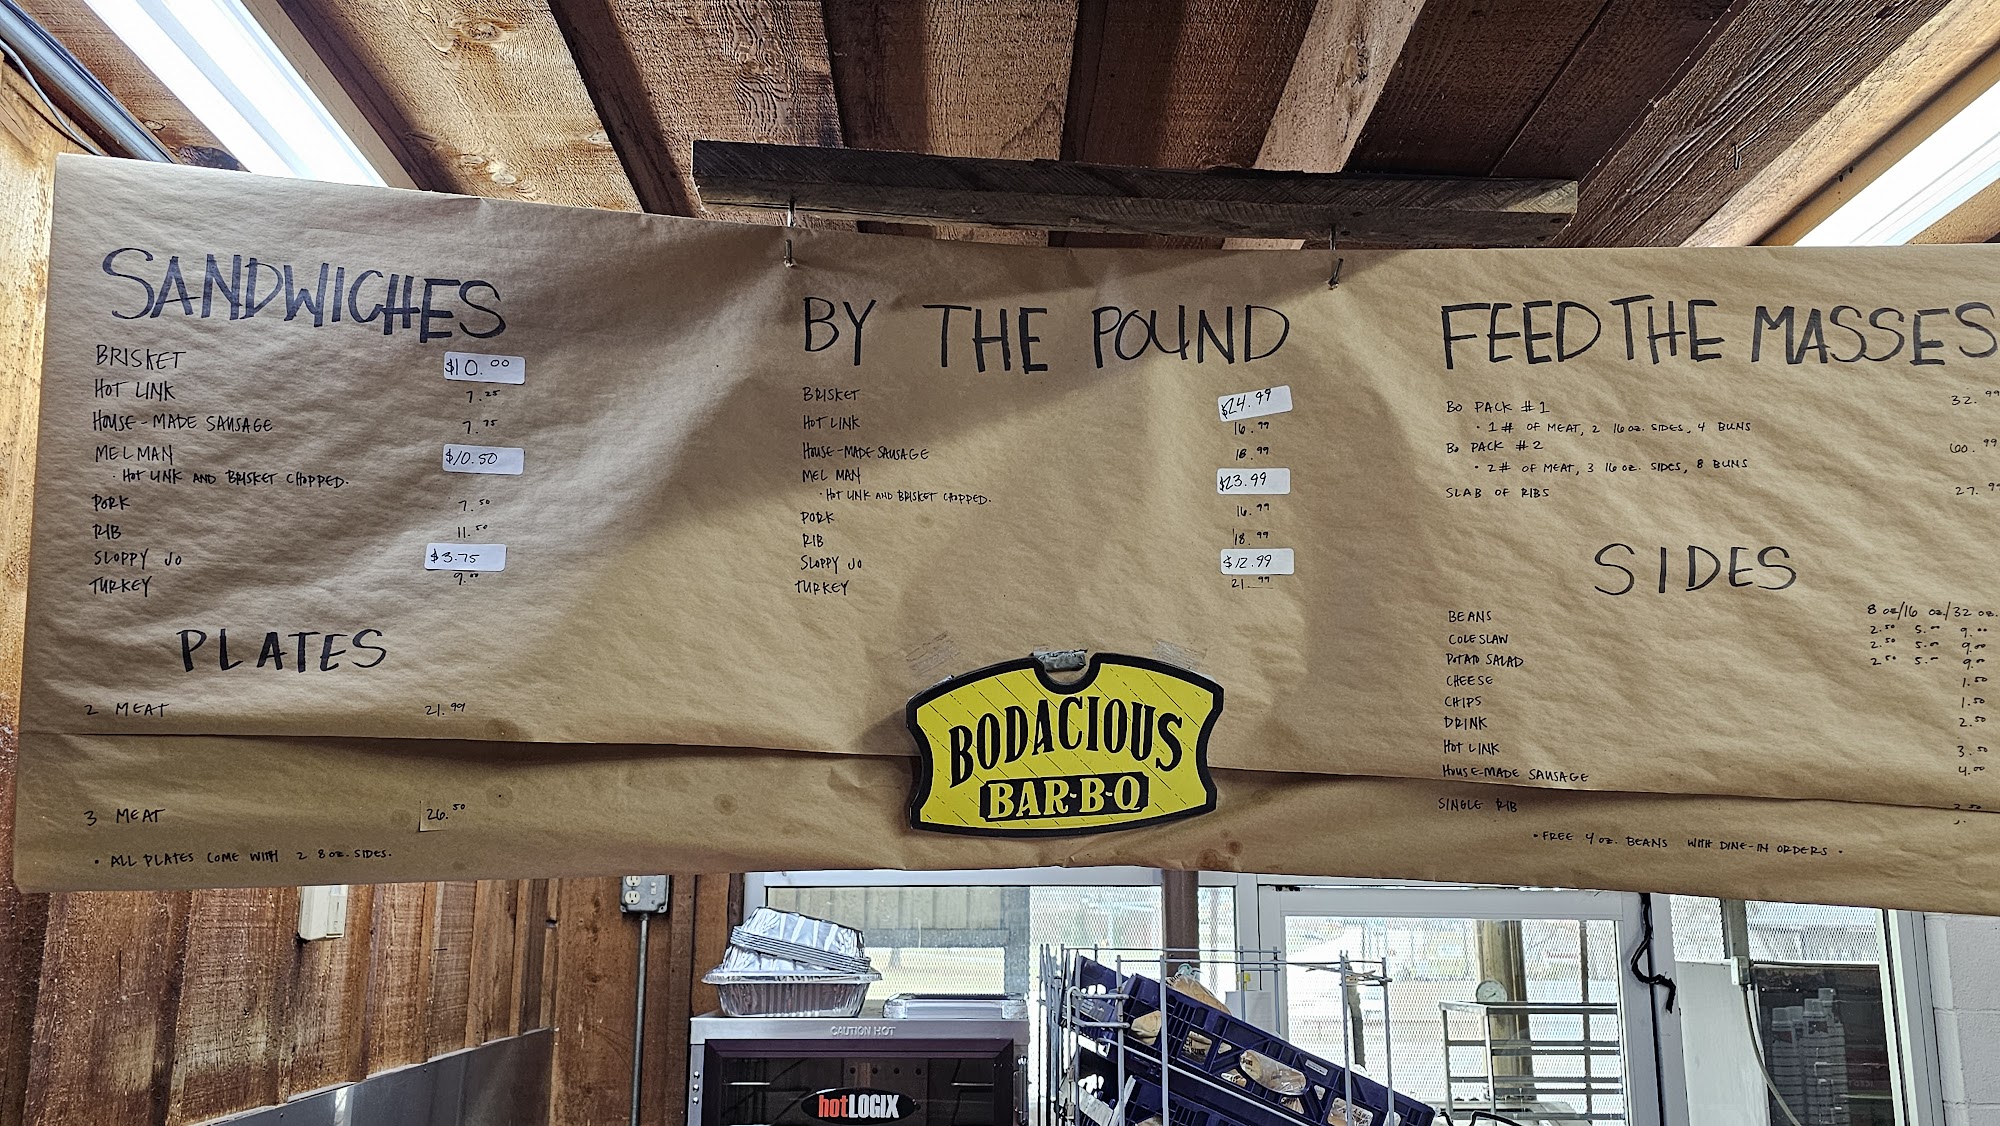 SANDWICHES
BRISKET $10.00
HOT LINK 7.25
HOUSE-MADE SAUSAGE 7.75
MEL MAN $10.50
· HOT LINK AND BRISKET CHOPPED.
PORK 7.50
RIB 11.50
SLOPPY JO $3.75
TURKEY 9.00
PLATES
2 MEAT 21.99
3 MEAT 26.50
· ALL PLATES COME WITH 2 8 OZ. SIDES.
BY THE POUND
BRISKET $24.99
HOT LINK 16.99
HOUSE-MADE SAUSAGE 18.99
MEL MAN $23.99
· HOT LINK AND BRISKET CHOPPED.
PORK 16.99
RIB 18.99
SLOPPY JO $12.99
TURKEY 21.99
BODACIOUS
BAR-B-Q
FEED THE MASSES
BO PACK #1 32.99
· 1# OF MEAT, 2 16 OZ. SIDES, 4 BUNS
BO PACK #2 60.99
· 2# OF MEAT, 3 16 OZ. SIDES, 8 BUNS
SLAB OF RIBS 27.99
SIDES
8 OZ/16 OZ/32 OZ.
BEANS 2.50 5.00 9.00
COLESLAW 2.50 5.00 9.00
POTATO SALAD 2.50 5.00 9.00
CHEESE 1.50
CHIPS 1.50
DRINK 2.50
HOT LINK 3.50
HOUSE-MADE SAUSAGE 4.00
SINGLE RIB
· FREE 4 OZ. BEANS WITH DINE-IN ORDERS ·
CAUTION HOT
hotLOGIX